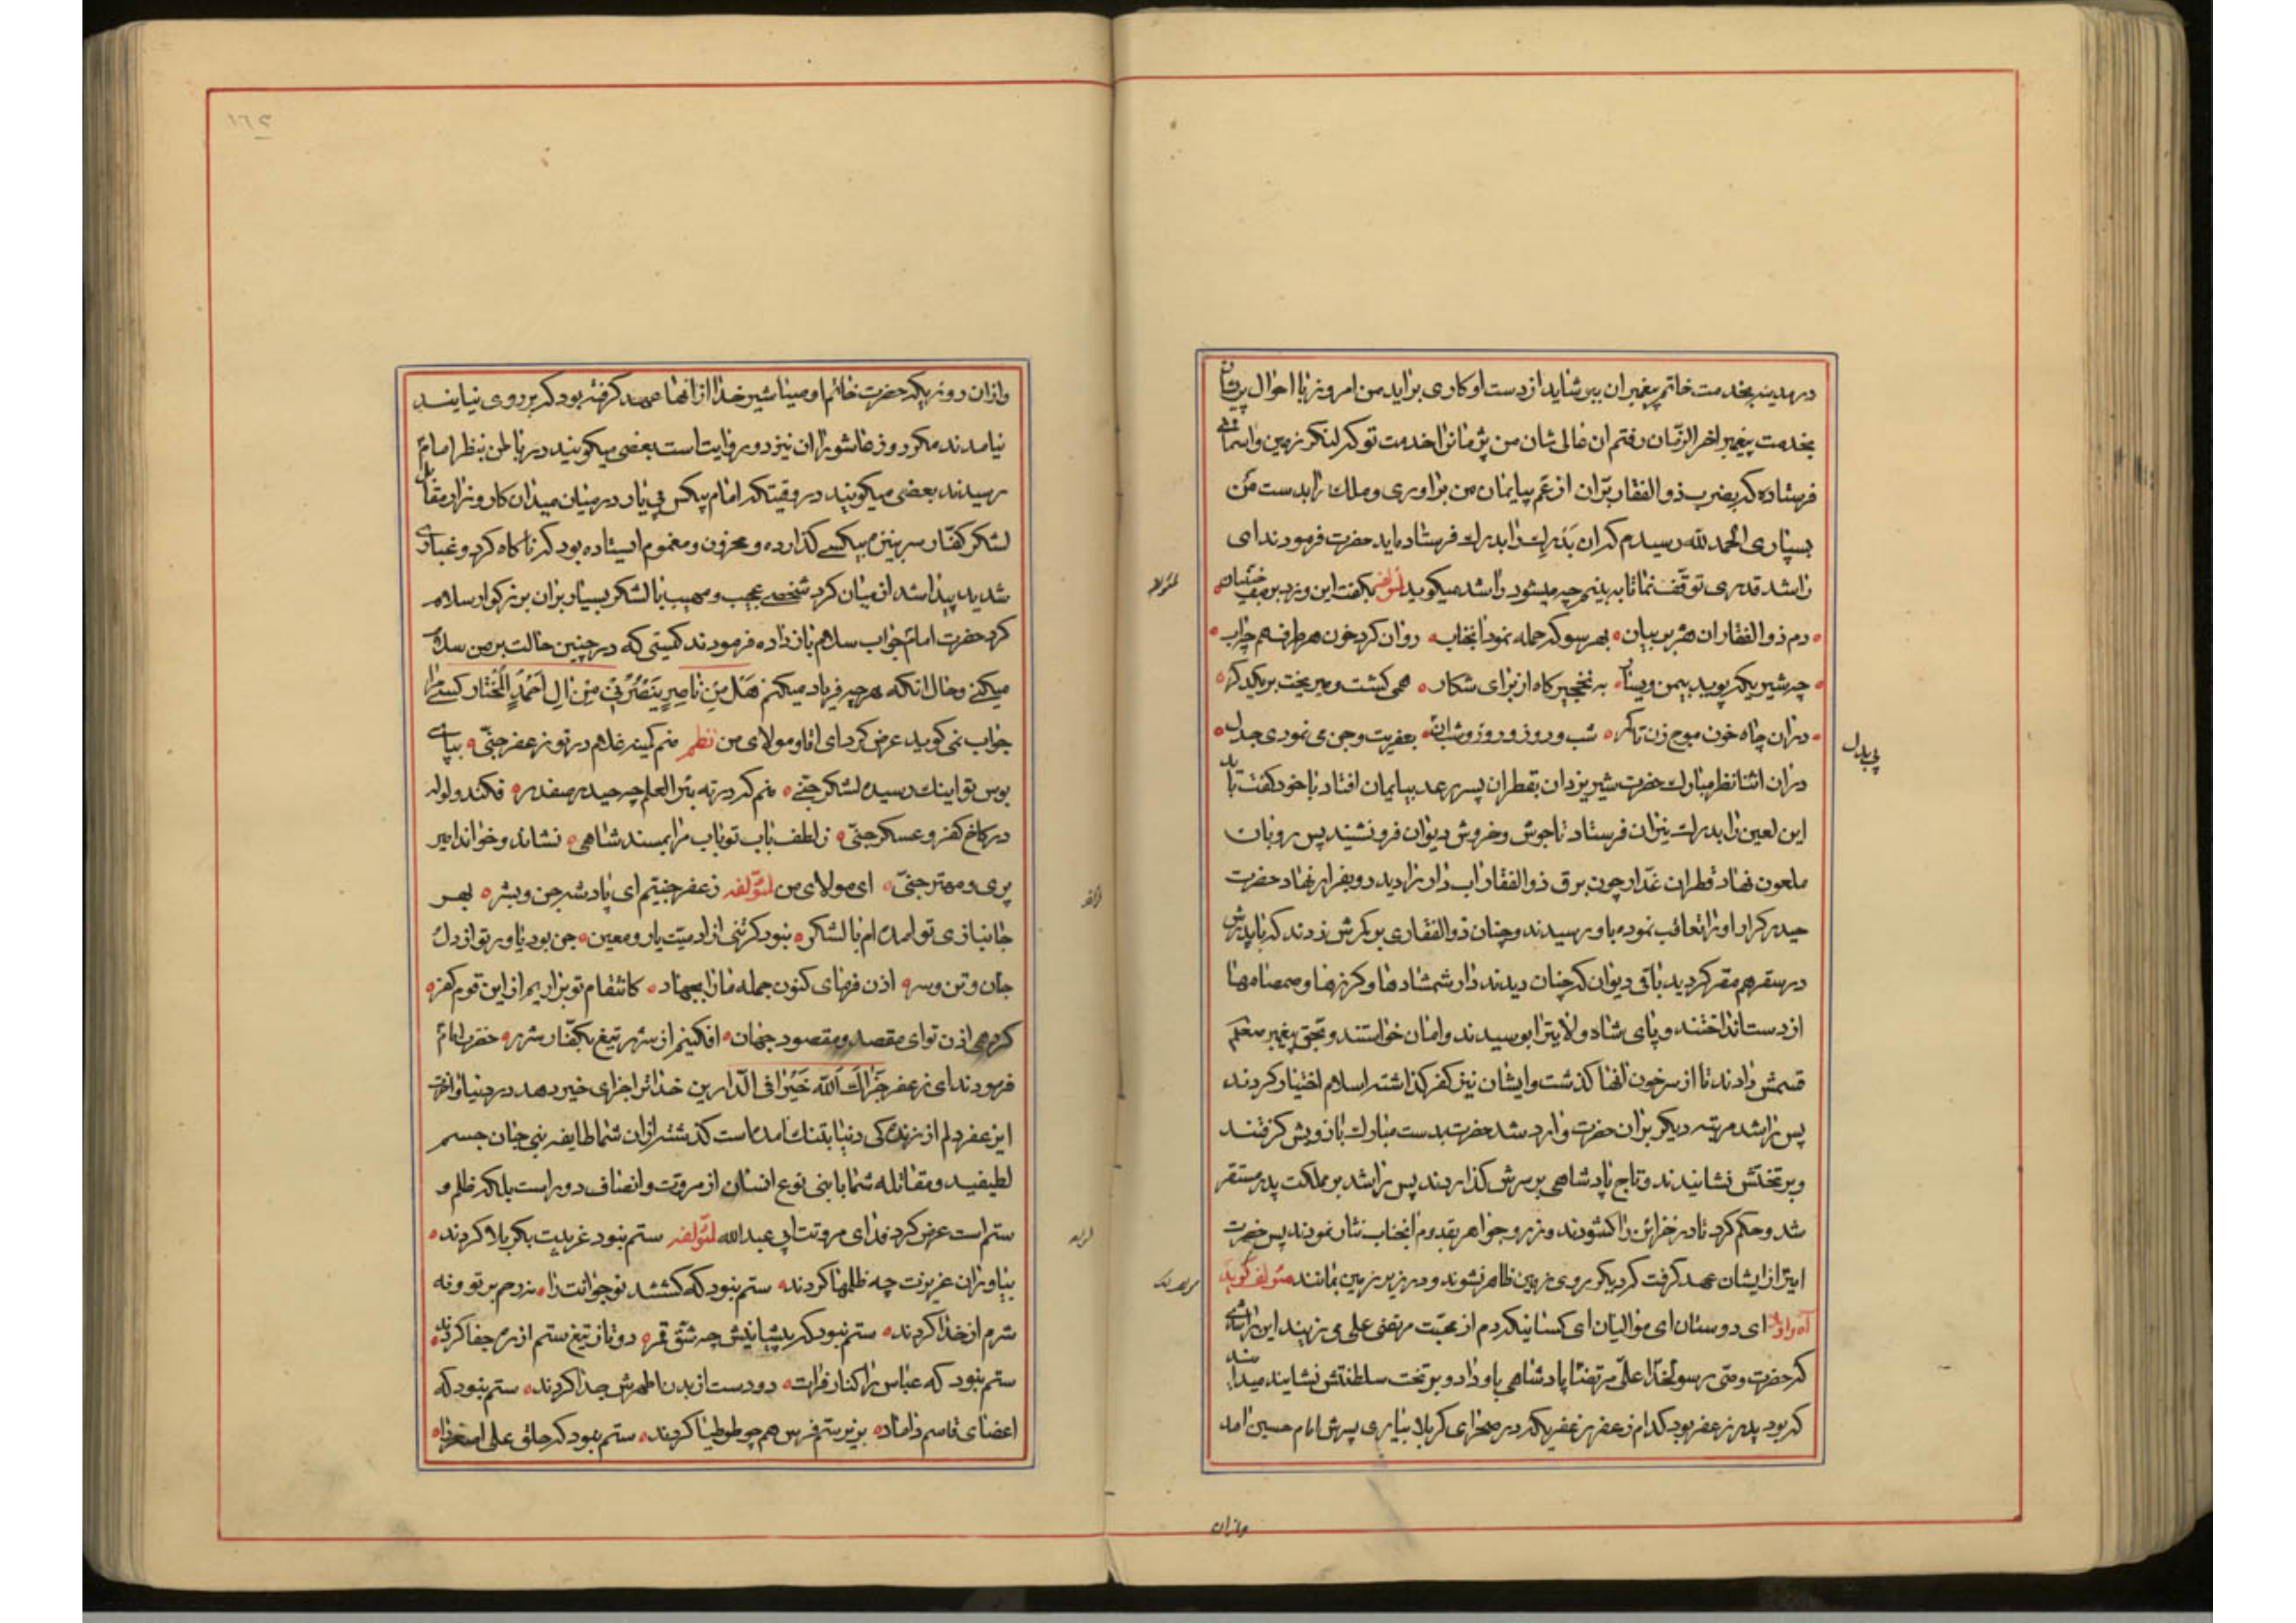 در مدینه بخدمت خاتم پیغمبران ببر شاید از دست او کاری براید من امروز با احوال پریشان
بخدمت پیغمبر اخر الزمان رفتم ان عالی شان من پژمانرا خدمت تو که لنگر زمین و اسمانی
فرستاده که بضرب ذو الفقار بران از غم بیایمان من براوری و ملک را بدست من
بسپاری الحمد لله رسیدم که ان بدرک را بدرک فرستاده اید حضرت فرمودند ای
راشد قدری توقف نما تا به بینم چه میشود راشد میکوید لمؤلفه بکفت این و زد بر صف جنیان
دم ذو الفقار ان هژبر بیان بهر سو که حمله نمود انجناب روان کرد خون هر طرف هم چواب
چه شیریکه پوید بیمن و یسار به نخجیر کاه از برای شکار همی کشت و میریخت بر یکدکر
در ان چاه خون موج زن تا کمر شب و روز و روز و شبان بعفریت و جنی نمودی جدل
در ان اثنا نظر مبارک حضرت شیر یزدان بقطران پسر رعد بیایمان افتاد با خود گفت باید
این لعین را بدرک نیران فرستاد تا جوش و خروش دیوان فرو نشیند پس رو بان
ملعون نهاد قطران غدار چون برق ذو الفقار اب دار را دید رو بفرار نهاد حضرت
حیدر کرار او را تعاقب نموده باو رسیدند و چنان ذو الفقاری بر کمرش زدند که با پدرش
در سقر هم مقر کردید باقی دیوان که چنان دیدند دار شمشادها و کرزها و صمصامها
از دست انداختند و پای شاه ولایترا بوسیدند و امان خواستند و بحق پیغمبر معظم
قسمش دادند تا از سر خون انها کذشت و ایشان نیز کفر کذاشته اسلام اختیار کردند
پس راشد مرتبه دیکر بر ان حضرت وارد شد حضرت بدست مبارک بازویش کرفتند
و بر تختش نشانیدند و تاج پادشاهی بر سرش کذاردند پس راشد بر مملکت پدر مستقر
شد و حکم کرد تا در خزائن را کشودند و زر و جواهر بقدوم انجناب نثار نمودند پس حضرت
امیر از ایشان عهد کرفت که دیکر بروی زمین ظاهر نشوند و در زیر زمین بمانند مؤلف کوید
اه و اوه ای دوستان ای موالیان ای کسانیکه دم از محبت مرتضی علی می زنید این راشدی
که حضرت وصی رسولخدا علی مرتضا پادشاهی باو داد و بر تخت سلطنتش نشانید میدانید
که بود پدر زعفر بود کدام زعفر زعفریکه در صحرای کربلا بیاری پسرش امام حسین امد
وازان
پی بدل
۱٦۲
و از ان روزیکه حضرت خاتم اوصیا شیر خدا از انها عهد کرفته بود که بر روی نیایند
نیامدند مکر روز عاشورا ان نیز دو روایت است بعضی میکویند در باطن بنظر امام
رسیدند بعضی میکویند در وقتیکه امام بیکس بی یار در میان میدان کارزار مقابل
لشکر کفار سر به نیزه بیکسی کذارده و محزون و مغموم ایستاده بود که ناکاه کرد و غباری
شدید پیدا شد از میان کرد شخصی عجیب و مهیب با لشکر بسیار بران بزرکوار سلام
کرد حضرت امام جواب سلام باز داده فرمودند کیستی که در چنین حالت بر من سلام
میکنی و حال انکه هر چه فریاد میکنم هَل مِن ناصِرٍ یَنصُرُنی مِن الِ اَحمَدٍ المُختار کسی مرا
جواب نمی کوید عرض کرد ای اقا و مولای من نظم منم کمینه غلام در تو زعفر جنی بپای
بوس تو اینک رسیده لشکر جنی منم که در ته بئر العلم چه حیدر صفدر فکند ولوله
در کاخ کفر و عسکر جنی ز لطف باب تو باب مرا بمسند شاهی نشاند و خواند امیر
پری و مهتر جنی ای مولای من لمؤلفه زعفر جنیم ای پادشه جن و بشر بهر
جانبازی تو امده ام با لشکر نبود کر تنی از ادمیت یار و معین جن بود یاور تو از دل
جان و تن و سر اذن فرمای کنون جمله مارا بجهاد کانتقام تو براریم از این قوم کفر
کر دهی اذن تو ای مقصد و مقصود جهان افکنیم از شرر تیغ بکفار شرر حضرت امام
فرمودند ای زعفر جَزاکَ اللّه خَیراً فی الدارین خدا ترا جزای خیر دهد در دنیا و اخرت
ای زعفر دلم از زندکی دنیا بتنک امده است کذشته از ان شما طایفه بنی جان جسم
لطیفید و مقاتله شما با بنی نوع انسان از مروت و انصاف دور است بلکه ظلم و
ستم است عرض کرد فدای مروتت ابی عبدالله لمؤلفه ستم نبود غریبت بکربلا کردند
بیاوران عزیزت چه ظلمها کردند ستم نبود که کشتند نوجوانت را نه رحم بر تو و نه
شرم از خدا کردند ستم نبود که پیشانیش چه شق قمر دو تا ز تیغ ستم از ره جفا کردند
ستم نبود که عباس را کنار فرات دو دست از بدن اطهرش جدا کردند ستم نبود که
اعضای قاسم داماد بزیر ستم فرس هم چو طوطیا کردند ستم نبود که حلق علی اصغر را